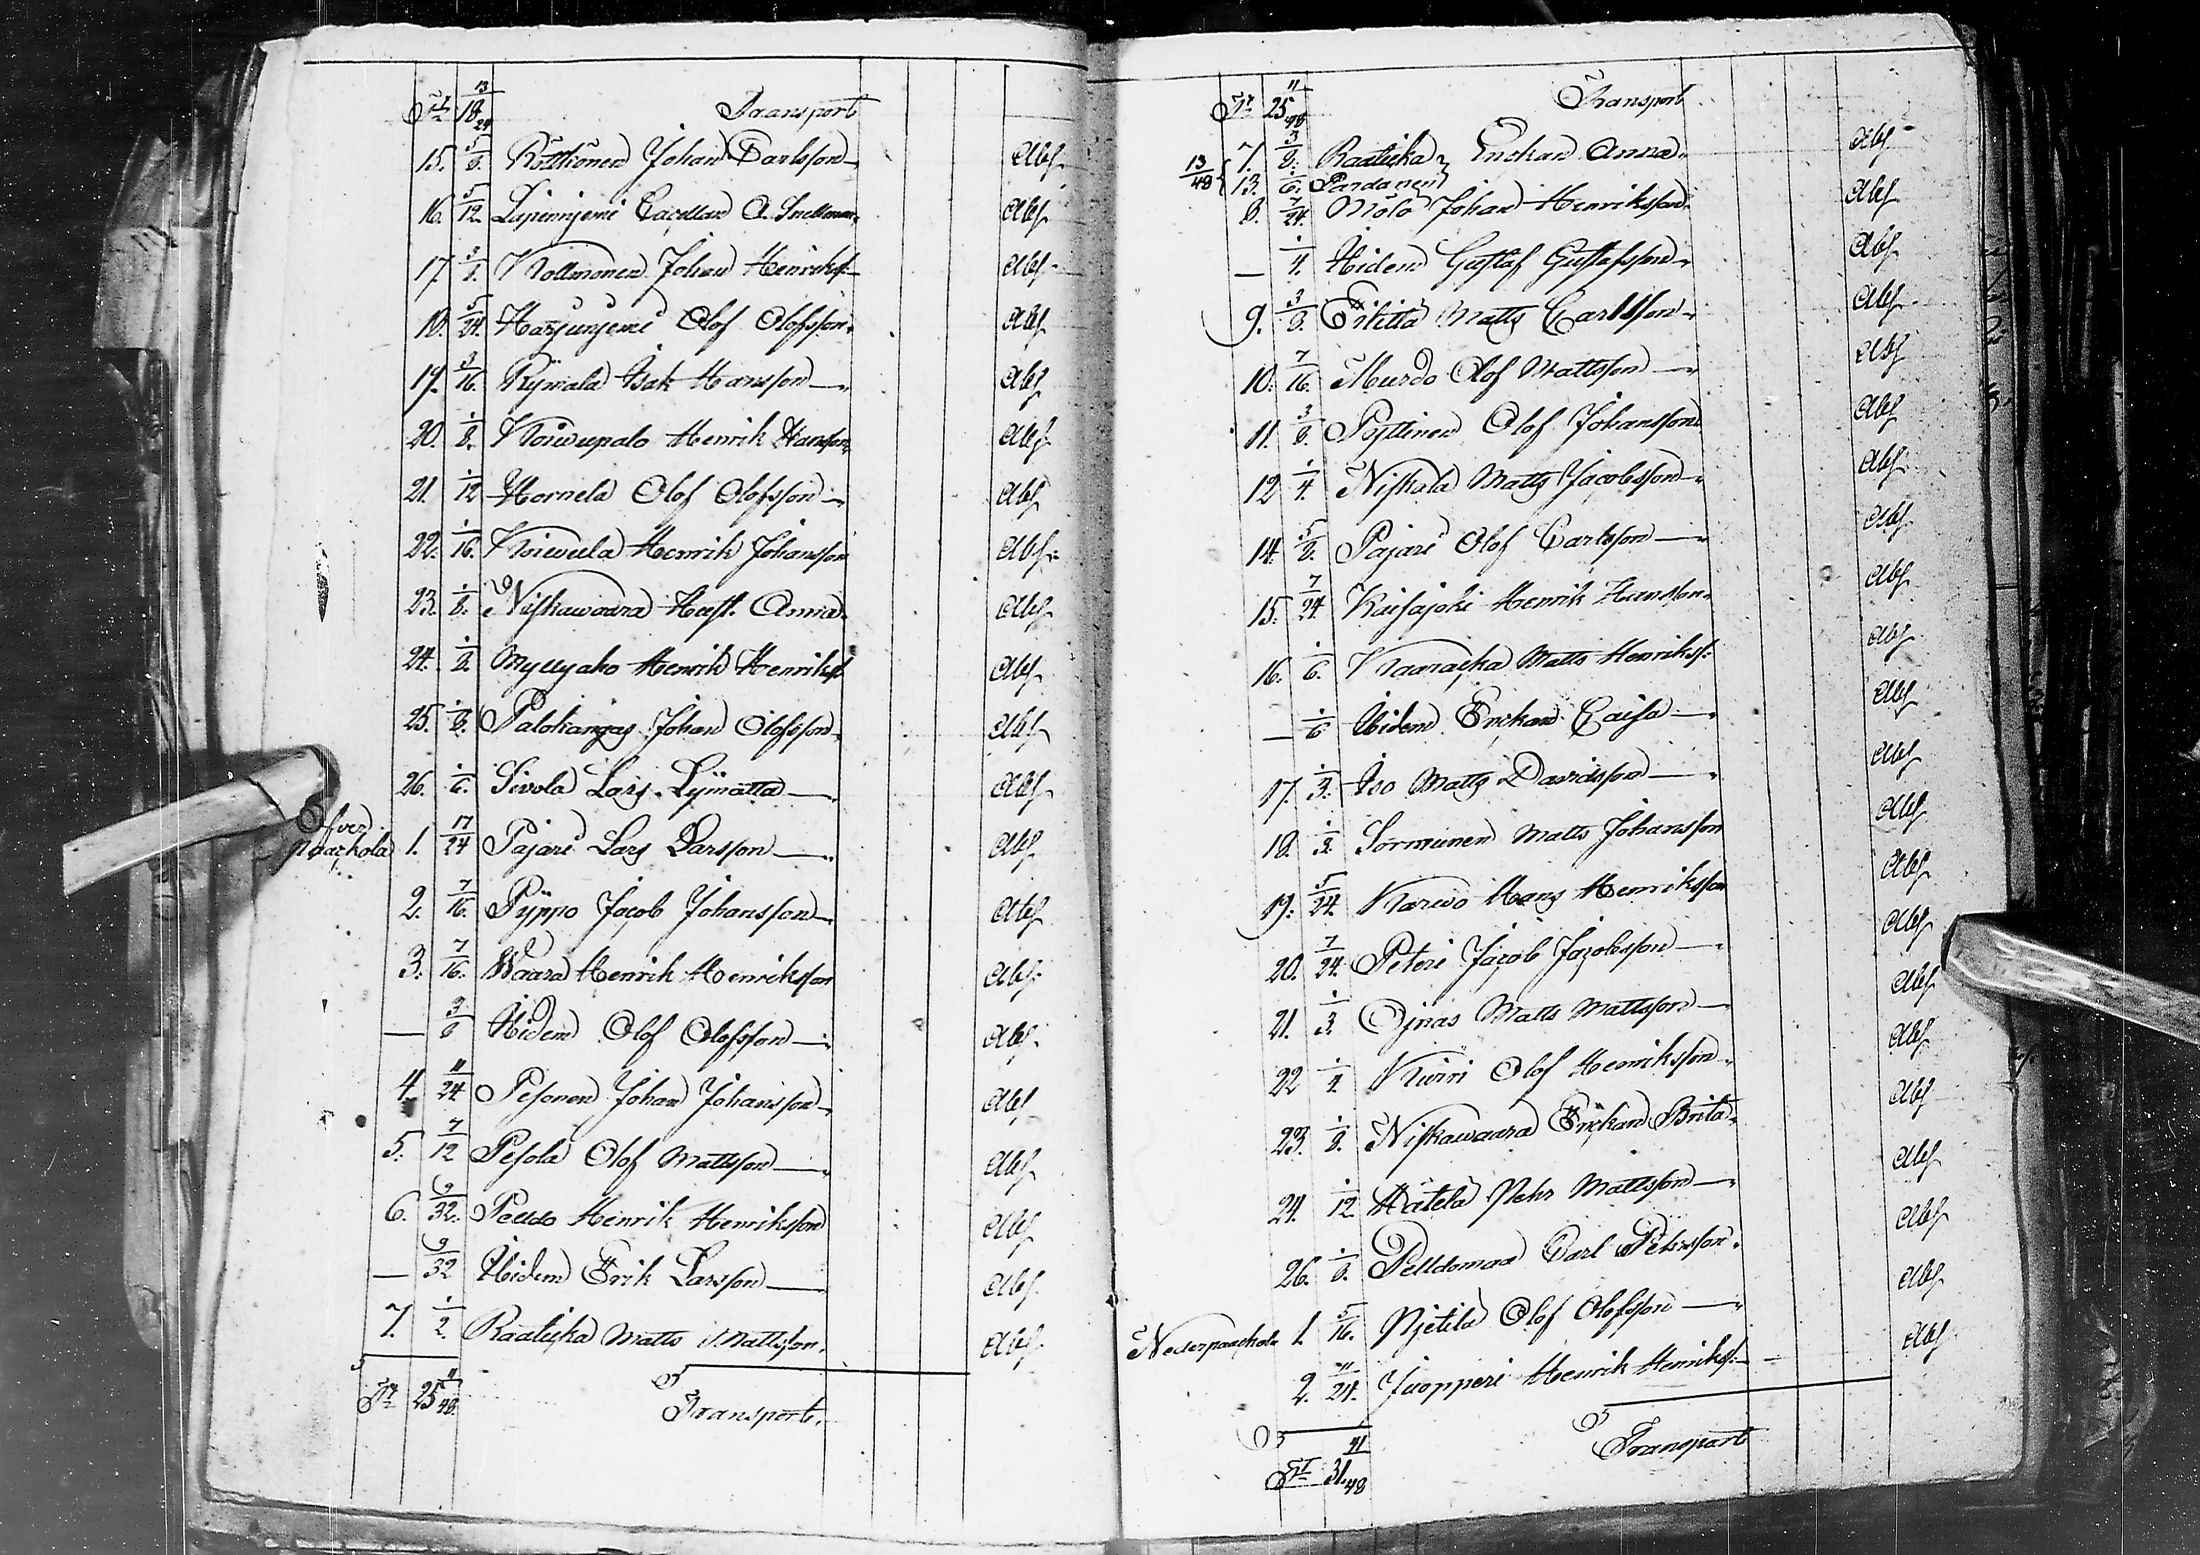 Tr 18 13/24 Transport
15. 5/8. Röttiönen Johan Carlsson Abs
16. 5/12. Lijeminjemi Capellan A. Snellman Abs
17. 3/8. Kollmonen Johan Henrikss. Abs
18. 5/24. Harjunjemi Olof Olofsson Abs
19. 3/16. Rijwala Isak Hansson Abs
20. 1/8. Koiwupalo Henrik Hansson Abs
21. 1/12 Hornela Olof Olofsson Abs
22. 1/16. Koiwula Henrik Johansson Abs
23. 1/8. Niskawaara Hust. Anna Abs
24. 1/8. Myllyaho Henrik Henrikss Abs
25. 1/8. Palokangas Johan Olofsson Abs
26. 1/6. Sivola Lars Lijmatta Abs
Öfver Paakola 1. 17/24 Pajari Lars Larsson Abs
2. 7/16. Pijppo Jacob Johansson Abs
3. 7/16. Waara Henrik Henriksson Abs
— 3/8 Ibidem Olof Olofsson Abs
4. 11/24 Pesonen Johan Johansson Abs
5. 7/12 Pesola Olof Mattsson Abs
6. 9/32. Peldo Henrik Henriksson Abs
— 9/32 Ibidem Erik Larsson Abs
7. 1/2. Raaticka Matts Mattsson Abs
Tr 25 11/48. Transport.
Tr 25 11/48 Transport
13/48 { 7. 3/8. Raaticka } Enckan Anna Abs
13. 1/6. Pardanen
8. 7/24. Mölö Johan Henriksson Abs
— 1/4. Ibidem Gustaf Gustafsson Abs
9. 3/8. Erkittä Matts Carlsson Abs
10. 7/16. Murdo Olof Mattsson Abs
11. 3/8. Pöjttinen Olof Johansson Abs
12 1/4. Niskala Matts Jacobsson Abs
14. 5/8. Pajari Olof Carlsson Abs
15. 7/24 Kaisajoki Henrik Hansson Abs
16. 1/6. Kaaracka Matts Henrikss: Abs
— 1/6 Ibidem Enckan Caisa Abs
17. 1/3. Iso Matts Davidsson Abs
18. 1/3. Sormunen Matts Johansson Abs
19. 5/24. Karwo Hans Henriksson Abs
20. 7/24. Peteri Jacob Jacobsson Abs
21. 1/3. Ojnas Matts Mattsson Abs
22 1/4. Kiviri Olof Henriksson Abs
23. 1/8. Niskawaara Enckan Brita Abs
24. 1/12. Hätelä Pehr Mattsson Abs
26. 1/8. Pelldomaa Carl Pehrsson Abs
Nederpaackola 1. 5/16. Njetilä Olof Olofsson Abs
2. 11/24. Juopperi Henrik Henrikss: Abs
Tr 31. 41/48 Transport